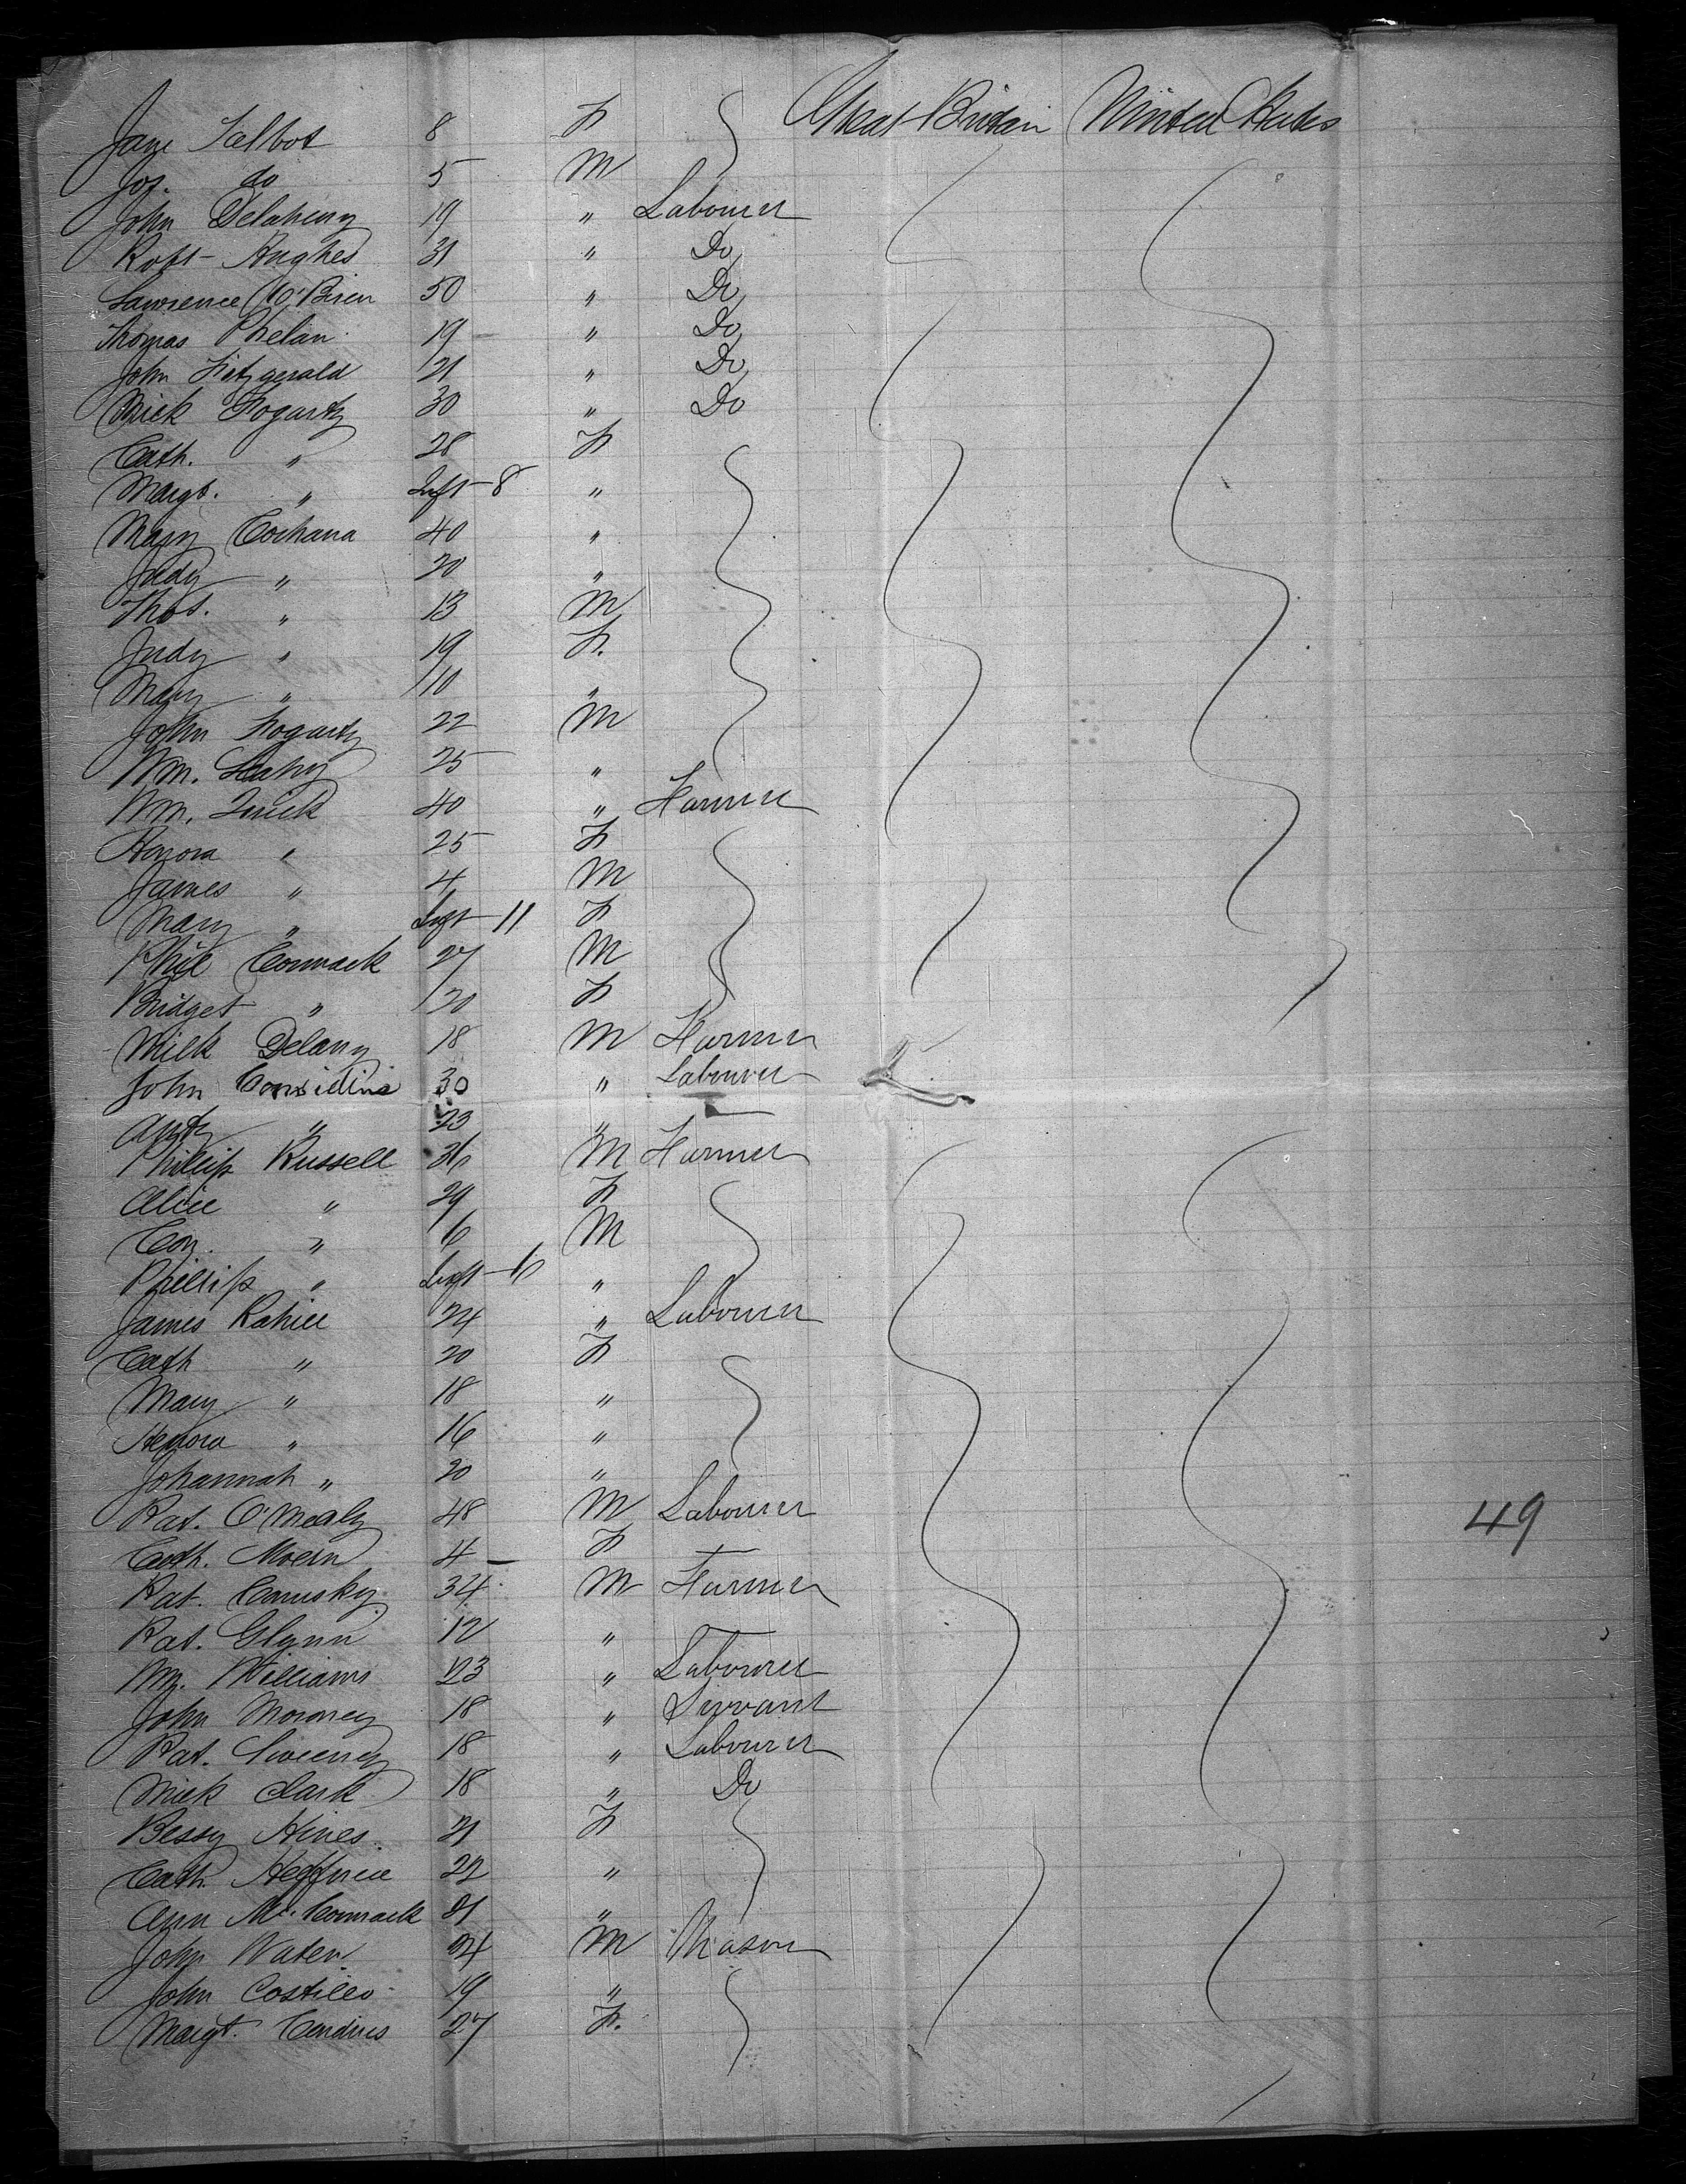 Jane Talbot 8 F Great Britain United States
Jos. do 5 M
John Delaheny 19 " Labourer
Robt Hughes 31 " Do
Lawrence O'Brien 50 " Do
Thomas Phelan 19 " Do
John Fitzgerald 21 " Do
Mick Fogarty 30 " Do
Cath. " 28 F
Margt. " Inft 8 "
Mary Cochana 40 "
Judy " 20 "
Thos. " 13 M
Judy " 19 F.
Mary " 10 "
John Fogarty 22 M
Wm. Leahy 25 "
Wm. Quick 40 " Farmer
Honora " 25 F
James " 4 M
Mary " Inft 11 F
Phil Cormack 27 M
Bridget " 20 F
Mick Delany 18 M Farmer
John Considine 30 " Labourer
Andy " 23 "
Phillip Russell 36 M Farmer
Alice " 29 F
Con. " 6 M
Phillip " Inft 10 "
James Kahill 24 " Labourer
Cath " 20 F
Mary " 18 "
Henora " 16 "
Johannah " 20 "
Pat. O'Mealy 48 M Labourer
Cath. 4 F
Pat. Comusky 34 M Farmer
Pat. Glynn 12 "
Wm. Williams 23 " Labourer
John Moroney 18 " Servant
Pat. Sweeney 18 " Labourer
Mick Clark 18 " Do
Bessy Hines 21 F
Cath. 22 "
Ann McCormack 21 "
John Waters 24 M Mason
John Costillo 19 "
Margt. 27 F.
49